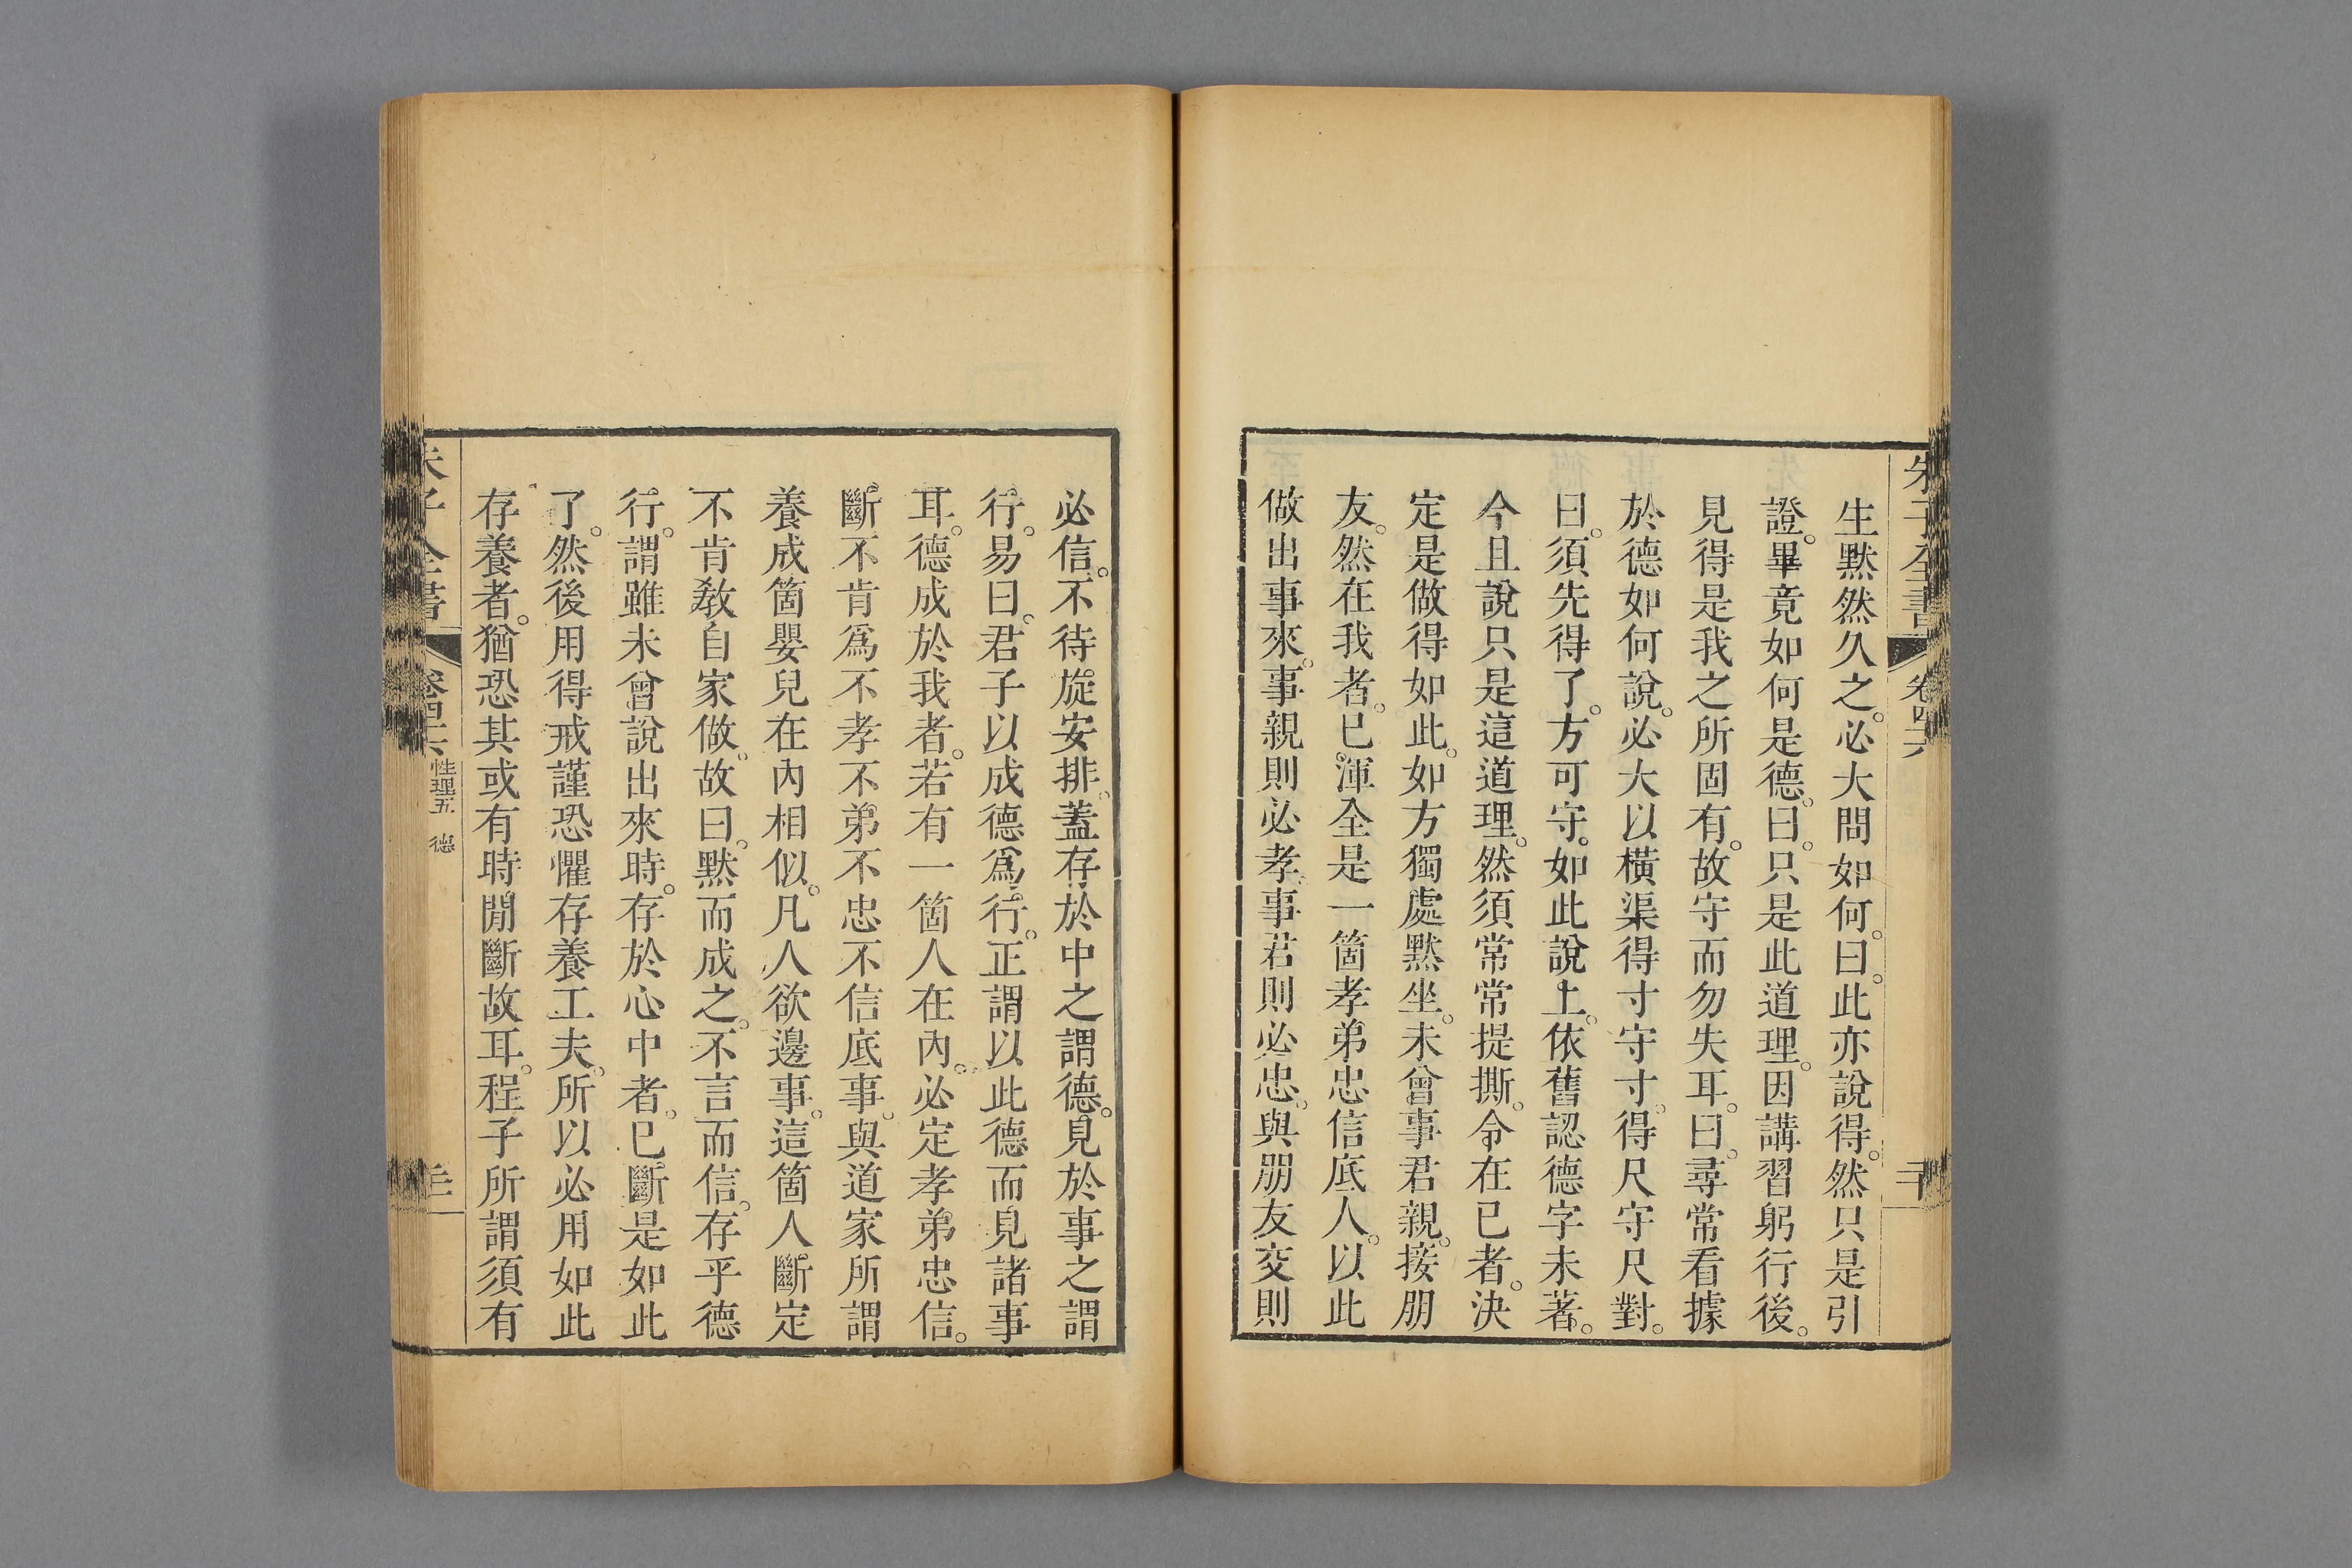 朱子全書 卷四六 二十
生默然久之。必大問如何。曰。此亦說得。然只是引
證。畢竟如何是德。曰。只是此道理。因講習躬行後。
見得是我之所固有。故守而勿失耳。曰。尋常看據
於德如何說。必大以橫渠得寸守寸。得尺守尺對。
曰。須先得了。方可守。如此說上。依舊認德字未著。
今且說只是這道理。然須常常提撕。令在已者。決
定是做得如此。如方獨處默坐。未曾事君親。接朋
友。然在我者。已渾全是一箇孝弟忠信底人。以此
做出事來。事親則必孝。事君則必忠。與朋友交則
必信。不待旋安排。蓋存於中之謂德。見於事之謂
行。易曰。君子以成德爲行。正謂以此德而見諸事
耳。德成於我者。若有一箇人在內。必定孝弟忠信。
斷不肯爲不孝不弟不忠不信底事。與道家所謂
養成箇嬰兒在內相似。凡人欲邊事。這箇人斷定
不肯敎自家做。故曰。默而成之。不言而信。存乎德
行。謂雖未曾說出來時。存於心中者。已斷是如此
了。然後用得戒謹恐懼存養工夫。所以必用如此
存養者。猶恐其或有時閒斷故耳。程子所謂須有
朱子全書 卷四六 性理五 德